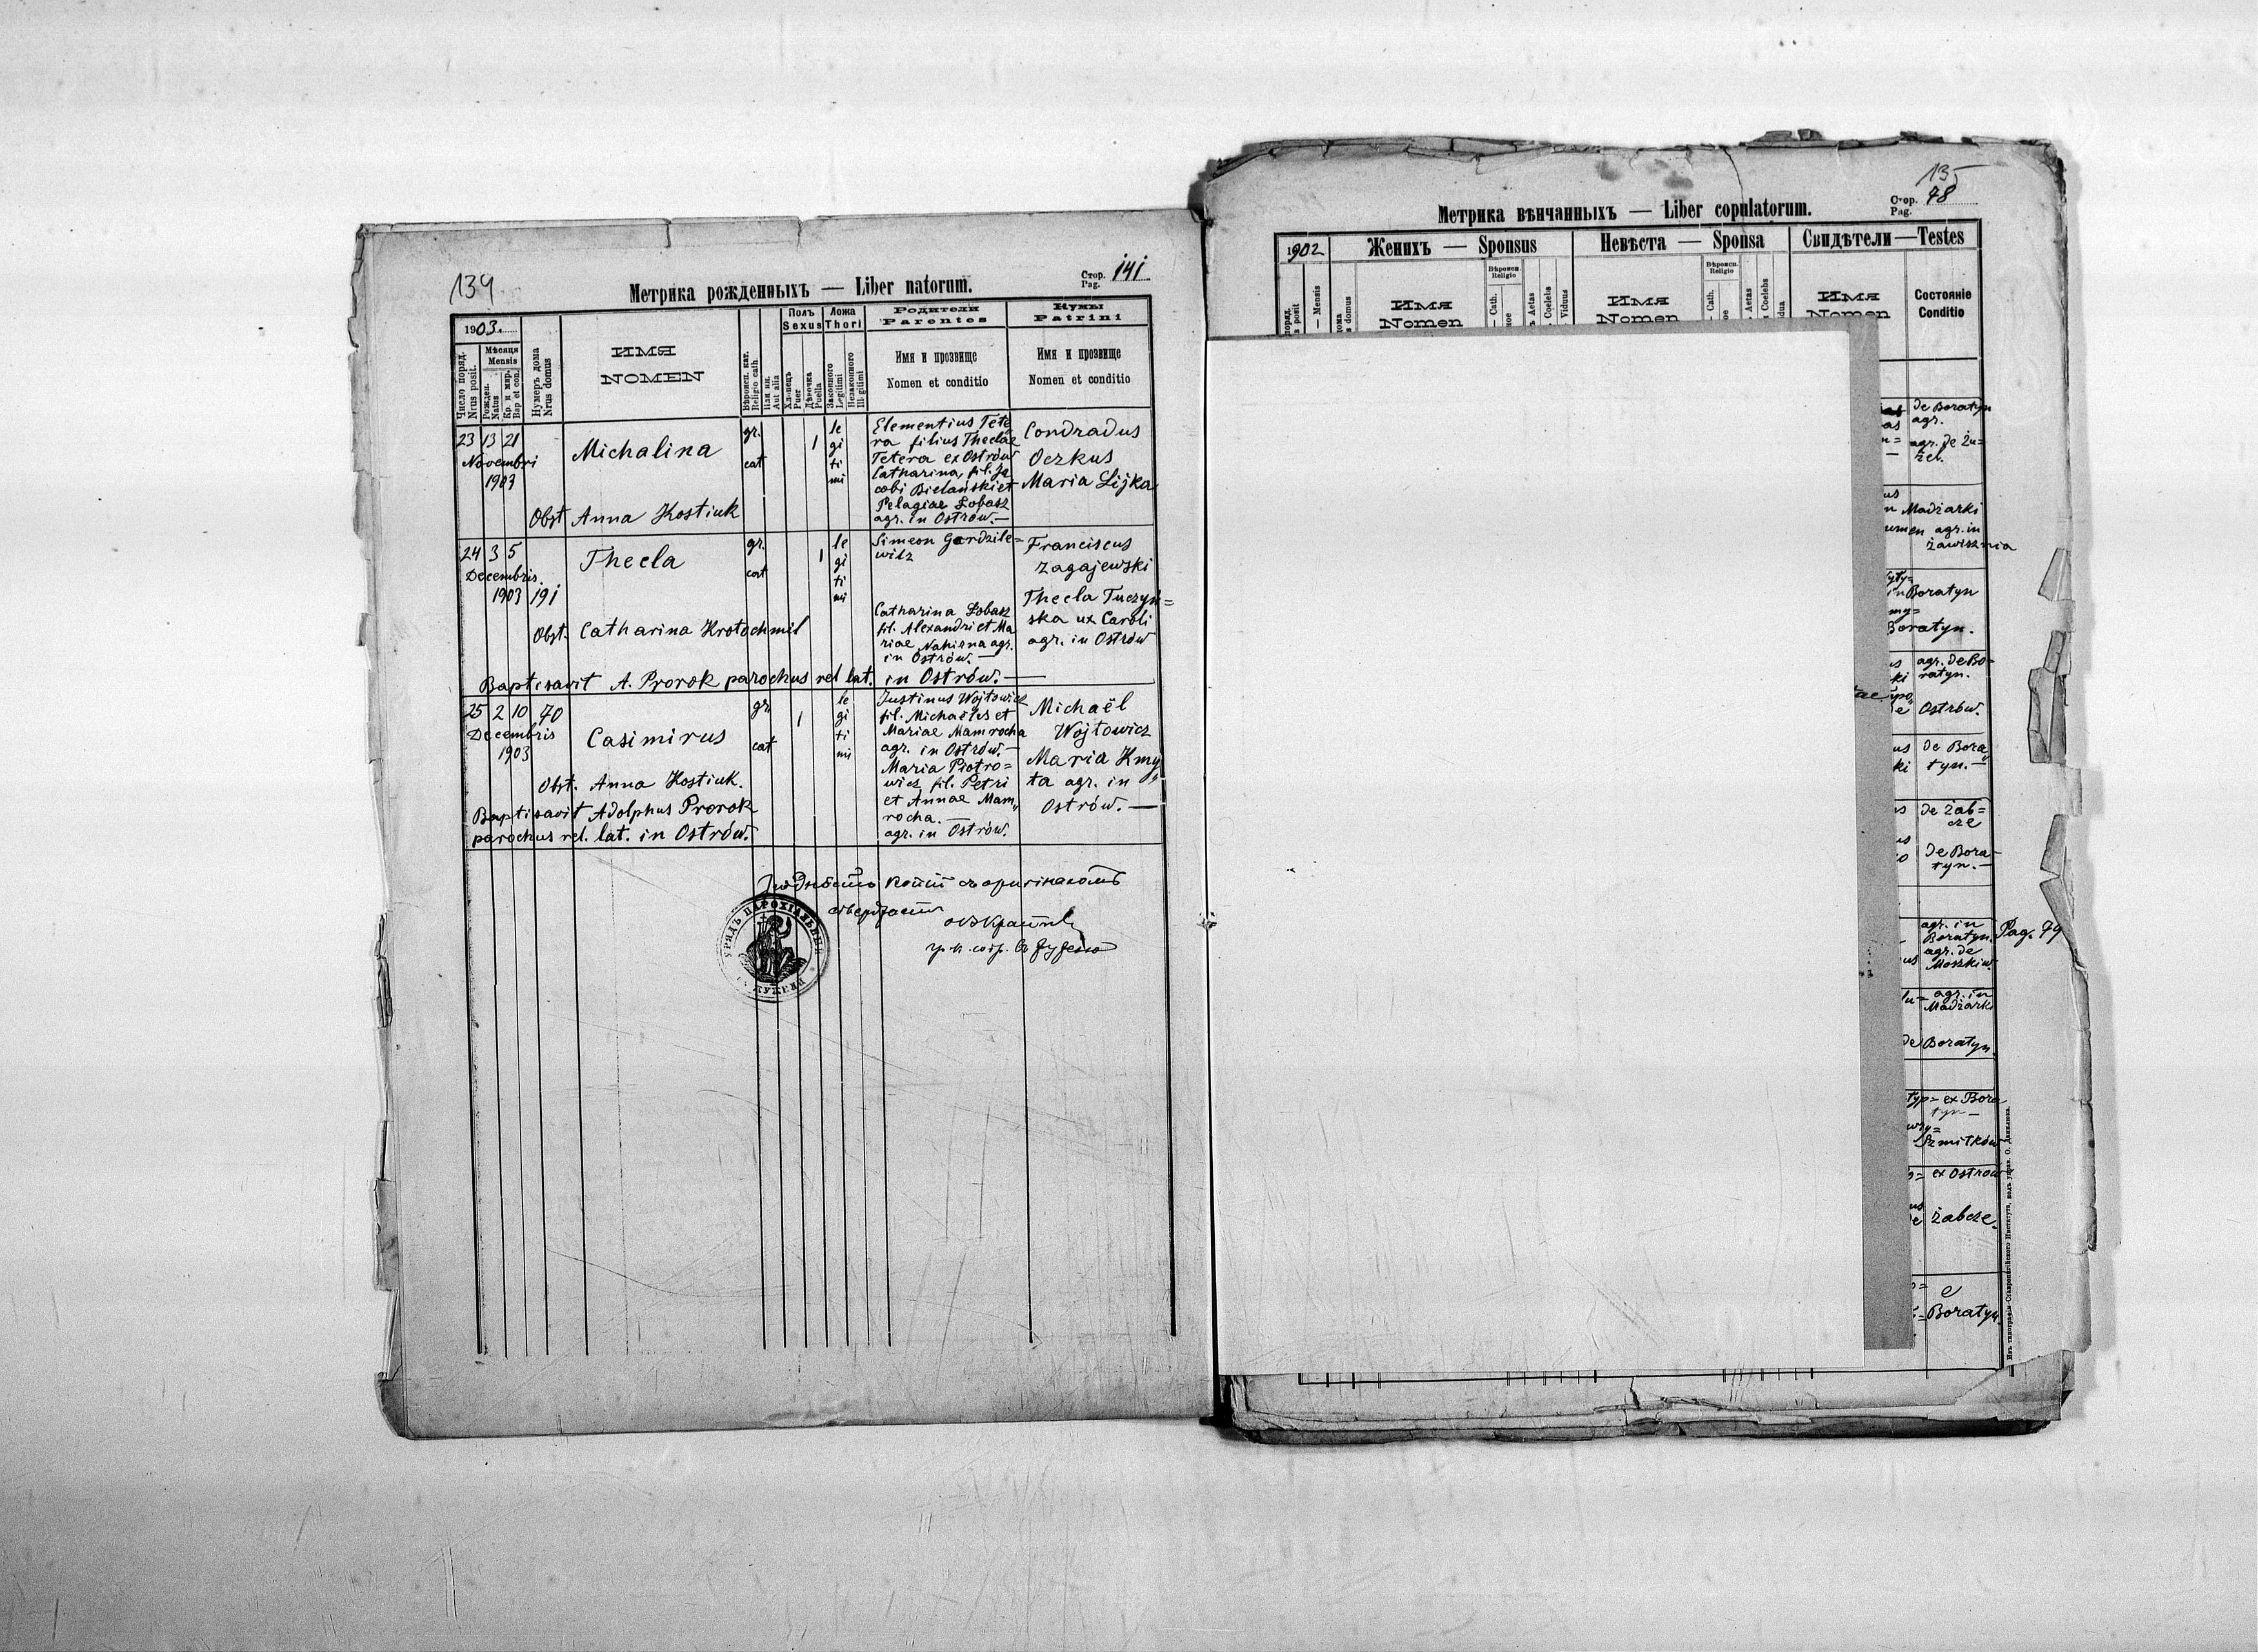 139
Метрика рожденныхъ — Liber natorum.
Стор. Pag. 141
1903.
Число поряд. Nrus posit.
Мѣсяця Mensis
Рожден. Natus
Кр. и мир. Bap et con.
Нумеръ дома Nrus domus
ИМЯ
NOMEN
Вѣроисп. кат. Religio cath.
Или ин. Aut alia
Полъ Sexus
Хлопецъ Puer
Дѣвочка Puella
Ложа Thori
Законного Legitimi
Незаконного Illegitimi
Родители
Parentes
Имя и прозвище
Nomen et conditio
Кумы
Patrini
Имя и прозвище
Nomen et conditio
23 13 21
Novembri
1903
Michalina
Obst Anna Kostiuk
gr.
cat
1
le
gi
ti
mi
Clementius Tete
ra filius Theclae
Tetera ex Ostrów
Catharina, fil. Ja
cobi Bielański et
Pelagiae Łobasz
agr. in Ostrów.—
Condradus
Oczkus
Maria Lijka
24 3 5
Decembris.
1903 191
Thecla
Obst. Catharina Krotochmil
gr.
cat
1
le
gi
ti
mi
Simeon Gordzile=
wicz
Catharina Łobasz
fil. Alexandri et Ma
riae Nahirna agr.
in Ostrów.—
Franciscus
Zagajewski
Thecla Tuczyń=
ska ux Caroli
agr. in Ostrów
Baptisavit A. Prorok parochus rel lat. in Ostrów.—
25 2 10 70
Decembris
1903
Casimirus
Obst. Anna Kostiuk.
Baptisavit Adolphus Prorok
parochus rel. lat. in Ostrów.
gr
cat
1
le
gi
ti
mi
Justinus Wojtowicz
fil. Michaëlis et
Mariae Mamrocha
agr. in Ostrów.—
Maria Piotro=
wicz fil. Petri
et Annae Mam„
rocha.—
agr. in Ostrów.
Michaël
Wojtowicz
Maria Kmy„
ta agr. in
Ostrów.—
УРЯДЪ ПАРОХІАЛЬНЫЙ
135
Метрика вѣнчанныхъ — Liber copulatorum.
Стор. Pag. 78
1902
Женихъ — Sponsus
Невѣста — Sponsa
Свидѣтели — Testes
Mensis
Имя
Nomen
Вѣроисп. Religio
Cath.
Aetas
Coelebs
Viduus
Имя
Nomen
Вѣроисп. Religio
Cath.
Aetas
Coelebs
Имя
Nomen
Состояніе
Conditio
de Boratyn
agr.
agr. de Żu=
żel.
Madziarki
agr. in
Zawisznia
in Boratyn
Boratyn.
agr. de Bo=
ratyn.
Ostrów.
de Bora„
tyn.—
de Żab=
cze
de Bora—
tyn.—
agr. in
Boratyn.
agr. de
Moszków.
Pag. 79
agr. in
Madziarki
de Boratyn.
ex Bora
tyn—
Szmitków
ex Ostrów
Żabcze.
e
Boratyn.
Изъ типографіи Ставропигійского Института, подъ управ. О. Данилюка.